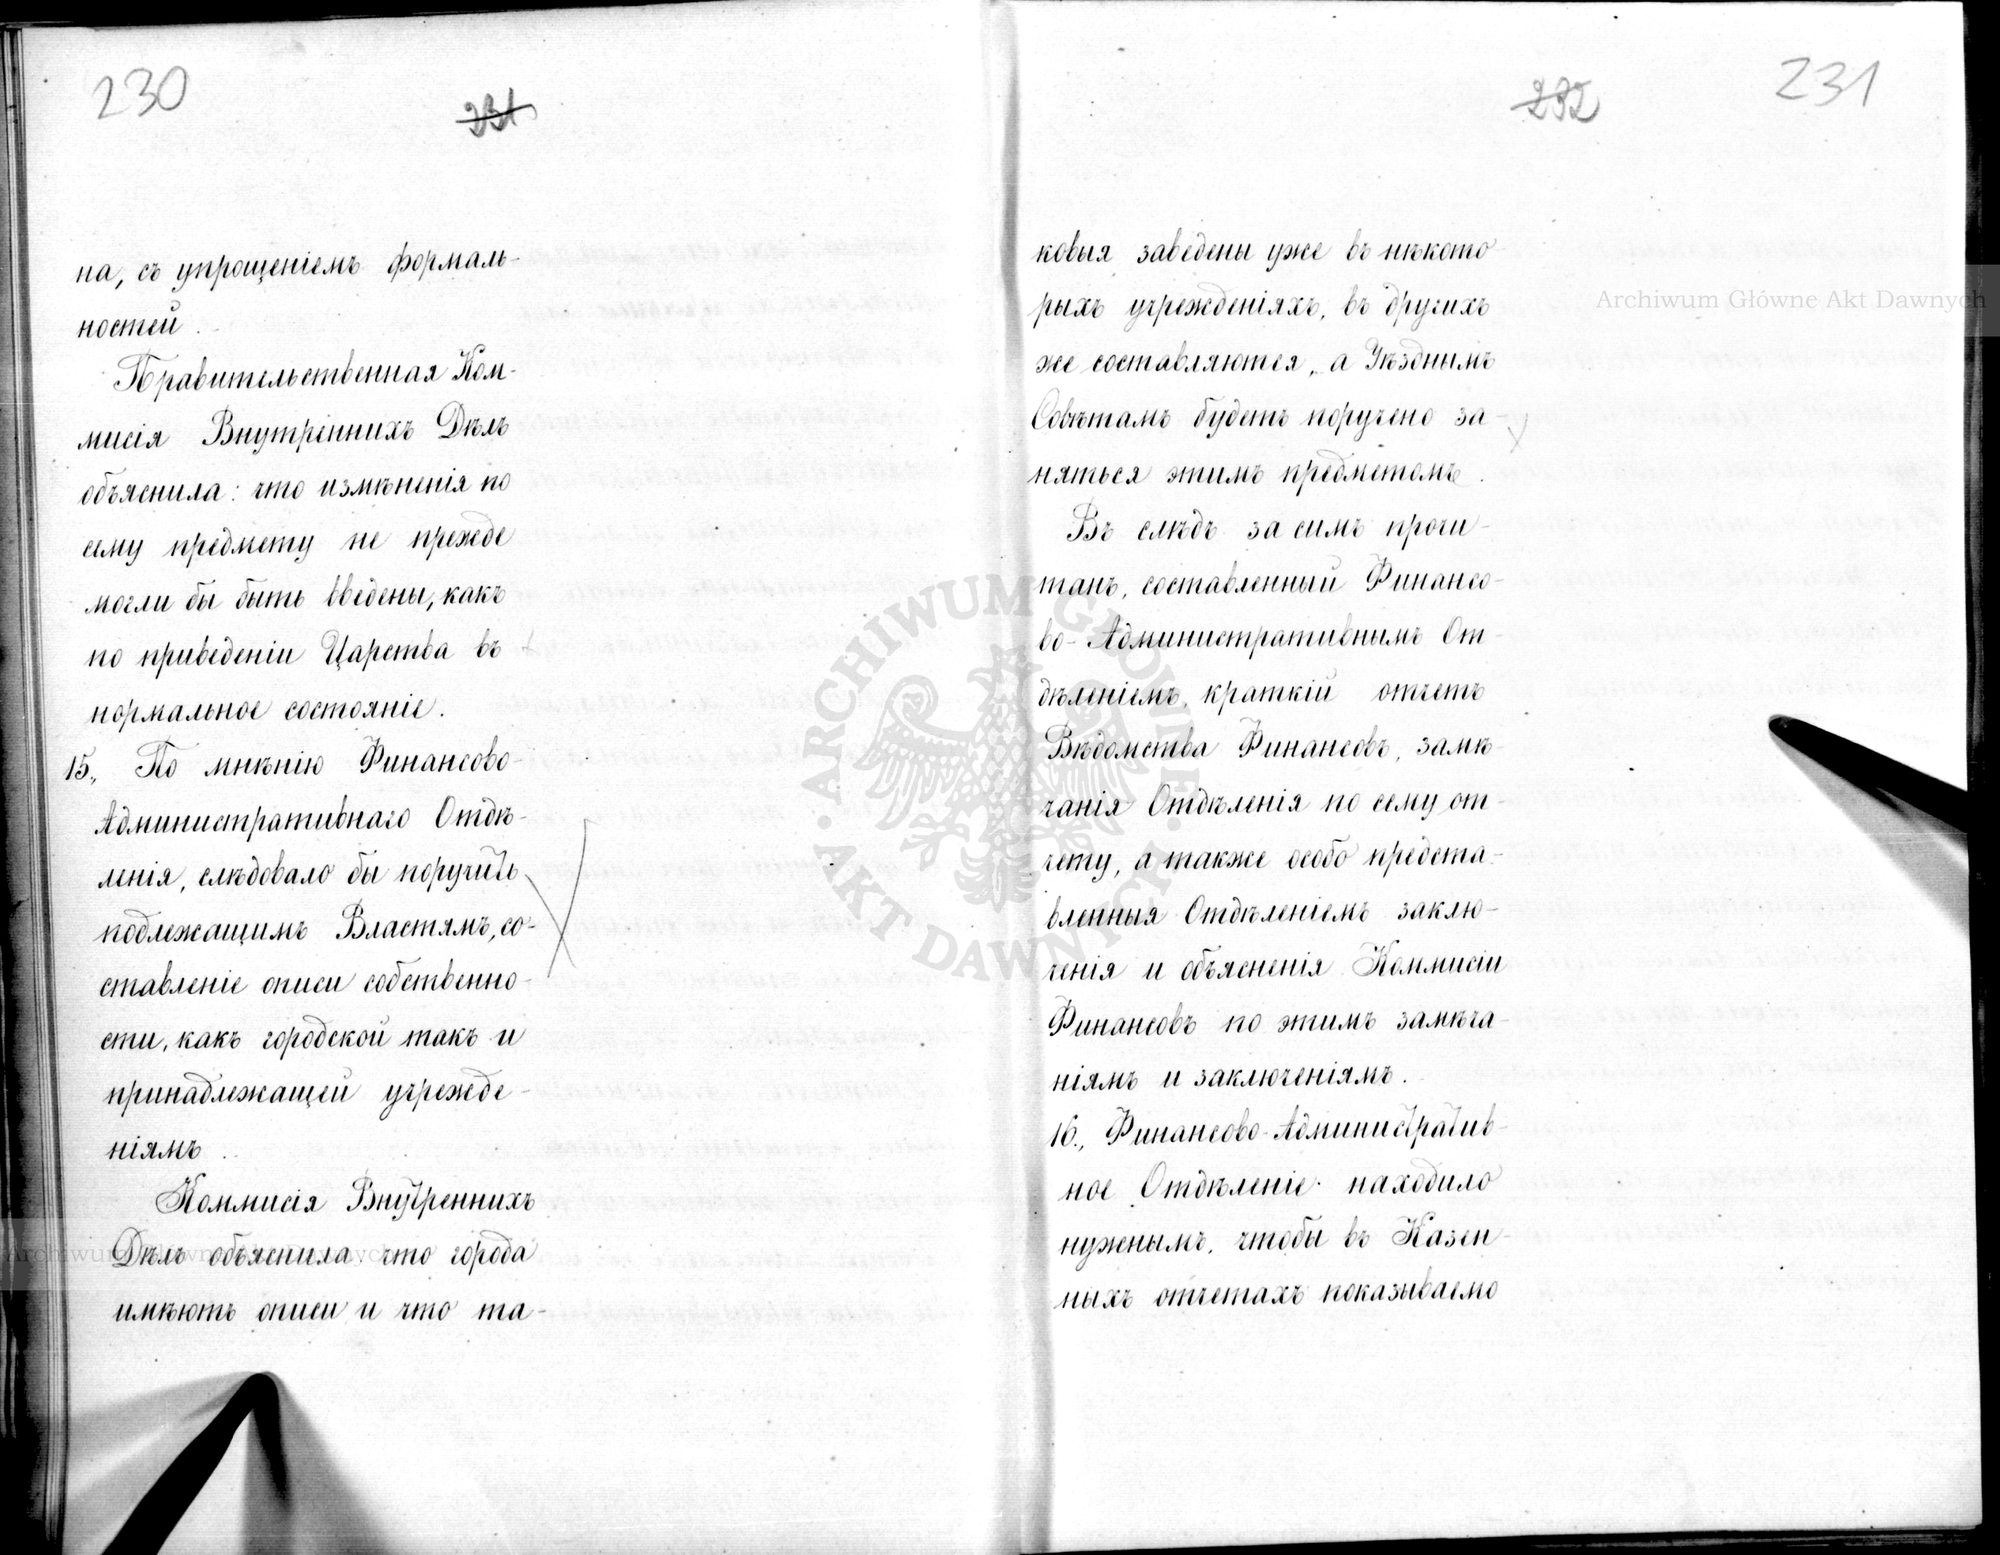 230
231
на, съ упрощеніемъ формаль-
ностей.
Правительственная Ком-
мисія Внутреннихъ Дѣлъ
объяснила: что измѣненія по
сему предмету не прежде
могли бы быть введены, какъ
по приведеніи Царства въ
нормальное состояніе.
15., По мнѣнію Финансово-
Административнаго Отдѣ-
ленія, слѣдовало бы поручить
подлежащимъ Властямъ, со-
ставленіе описи собственно-
сти, какъ городской такъ и
принадлежащей учрежде-
ніямъ.
Коммисія Внутреннихъ
Дѣлъ объяснила что города
имѣютъ описи и что та-
231
232
ковыя заведены уже въ нѣкото-
рыхъ учрежденіяхъ, въ другихъ
же составляются, а Уѣзднымъ
Совѣтамъ будетъ поручено за-
няться этимъ предметомъ.
Въ слѣдъ за симъ прочи-
танъ, составленный Финансо-
во-Административнымъ От-
дѣленіемъ, краткій отчетъ
Вѣдомства Финансовъ, замѣ-
чанія Отдѣленія по сему от-
чету, а также особо предста-
вленныя Отдѣленіемъ заклю-
ченія и объясненія Коммисіи
Финансовъ по этимъ замѣча-
ніямъ и заключеніямъ.
16., Финансово-Административ-
ное Отдѣленіе находило
нужнымъ, чтобы въ Казен-
ныхъ отчетахъ показываемо
Archiwum Główne Akt Dawnych
ARCHIWUM GŁÓWNE AKT DAWNYCH
Archiwum Główne Akt Dawnych